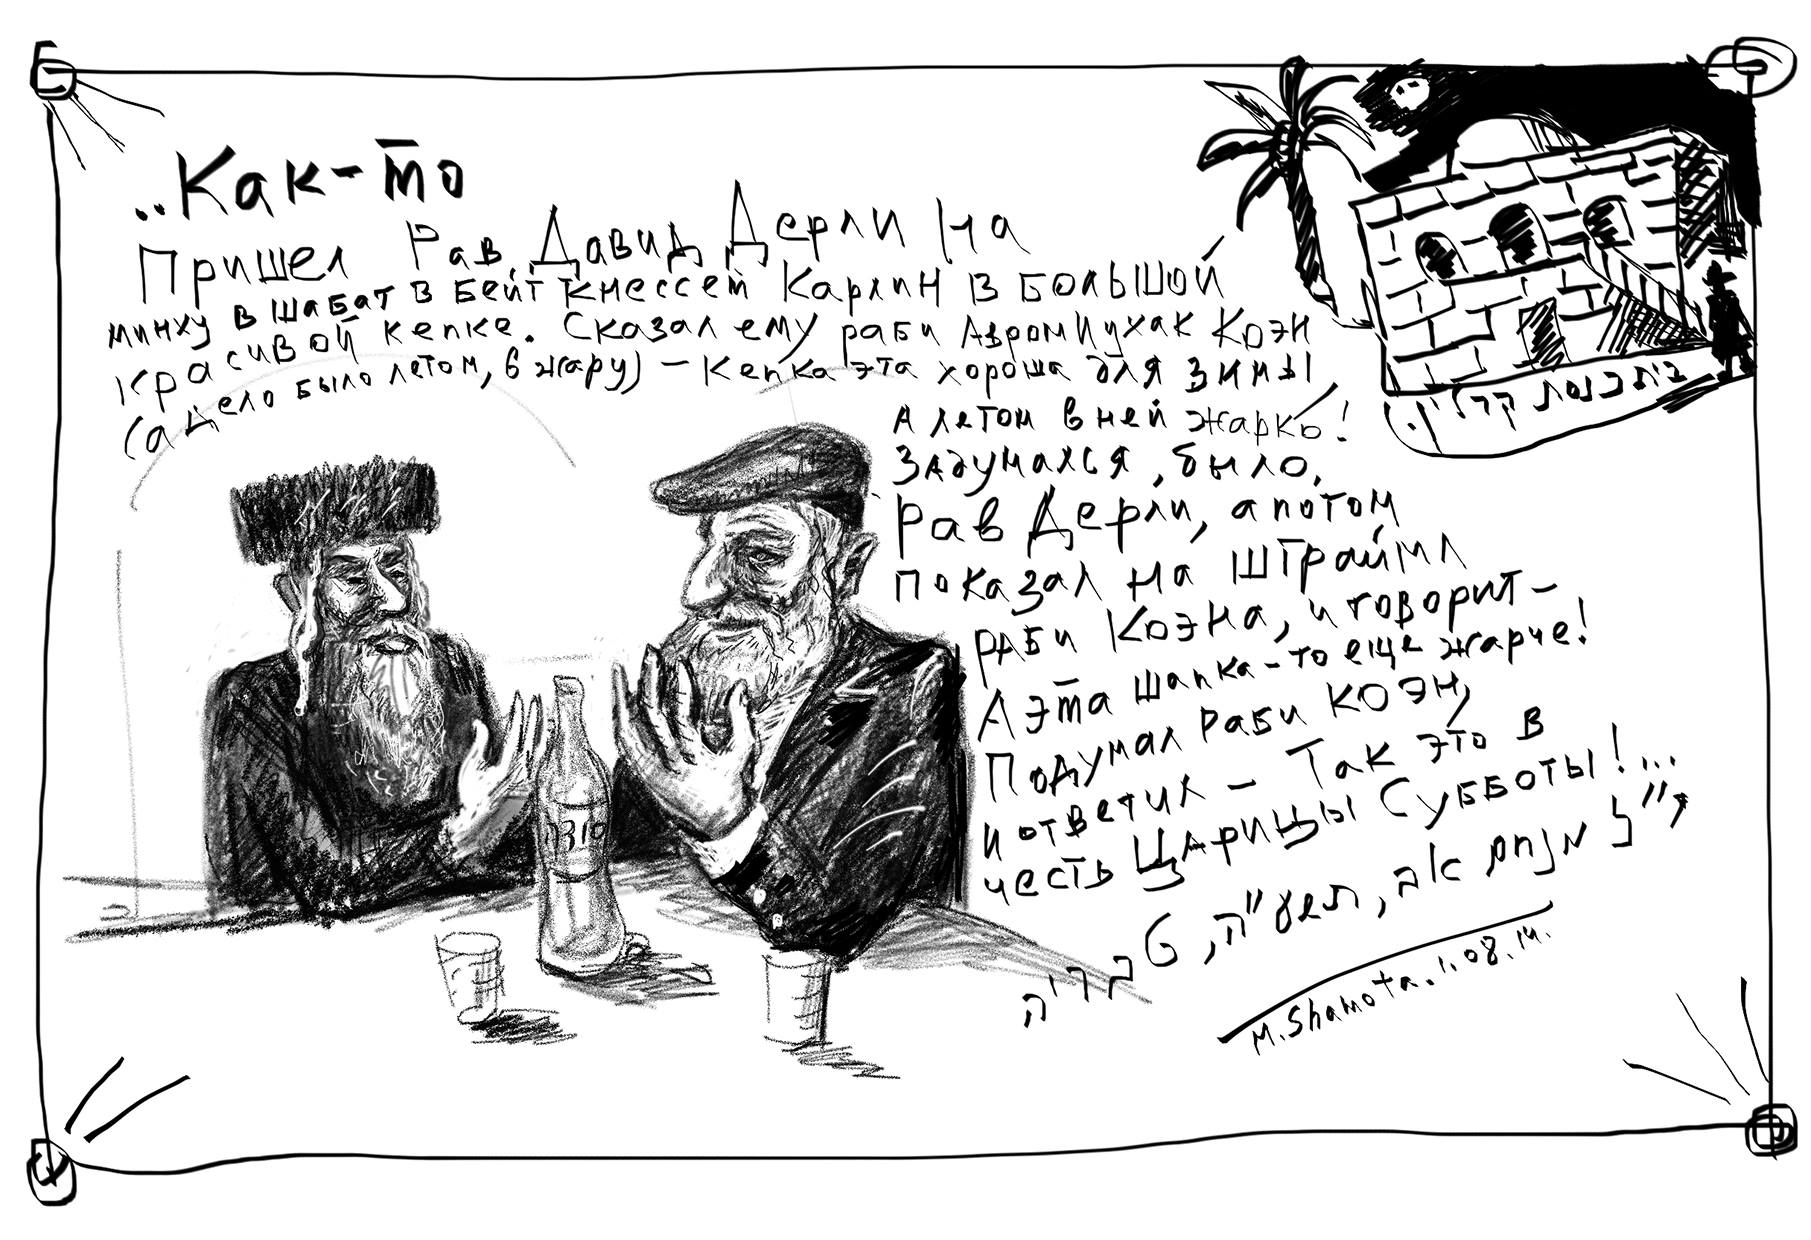 ..Как-то
Пришел Рав Давид Дерли на
минху в шабат в Бейт Кнессет Карлин в большой
красивой кепке. Сказал ему раби Авром Ицхак Коэн
(а дело было летом, в жару) — Кепка эта хороша для зимы
А летом в ней жарко!
Задумался, было,
Рав Дерли, а потом
показал на штраймл
раби Коэна, и говорит -
А эта шапка-то еще жарче!
Подумал раби Коэн,
и ответил - Так это в
честь Царицы Субботы!...
ל מנחם אב, תשע"ה, טבריה
M. Shamota. 1.08.14.
בית כנסת קרלין